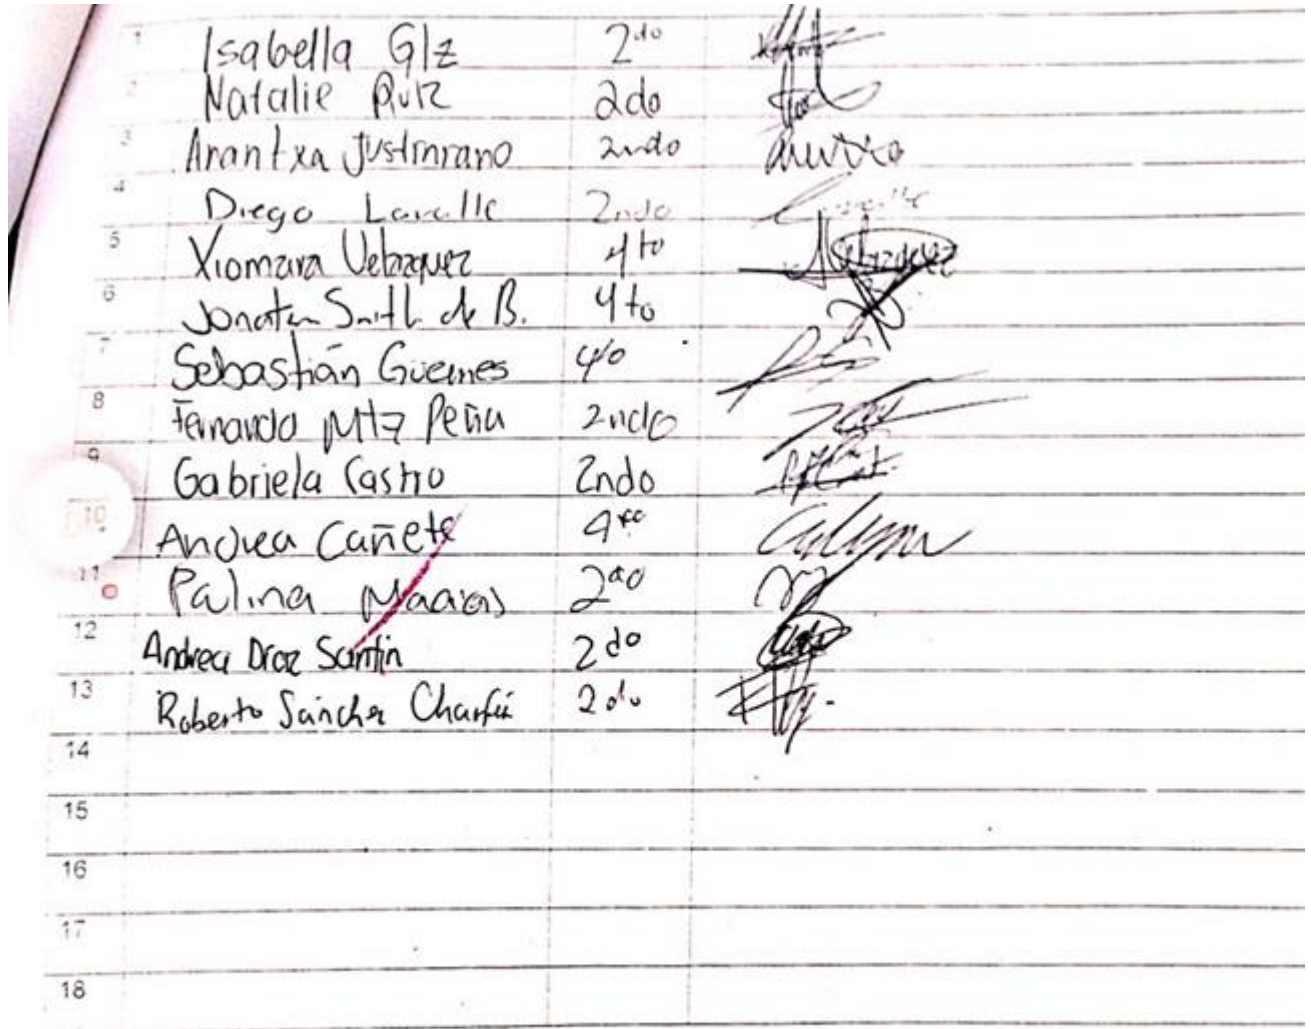 1 Isabella Glz 2do
2 Natalie Ruiz 2do
3 Arantxa Justiniano 2ndo
4 Diego Lavalle 2ndo
5 Xiomara Velazquez 4to Velazquez
6 Jonatan Smith de B. 4to
7 Sebastián Güemes 4to
8 Fernando Mtz Peña 2ndo
9 Gabriela Castro 2ndo
10 Andrea Cañete 4to
11 Palina Macias 2do
12 Andrea Díaz Santín 2do
13 Roberto Sánchez 2do
14
15
16
17
18